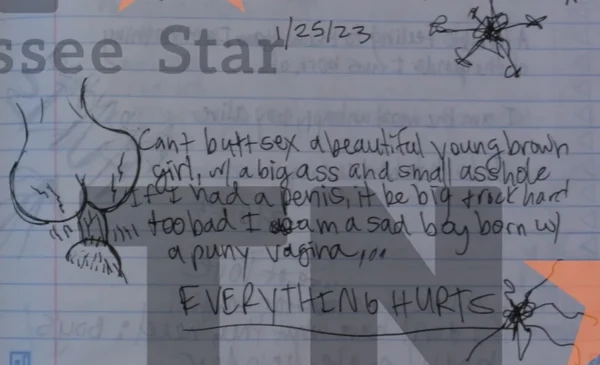 ssee Star
1/25/23
Cant buttsex a beautiful young brown
girl, w/ a big ass and small asshole
If I had a penis, it be big & rock hard
too bad I am a sad boy born w/
a puny vagina,,,
EVERYTHING HURTS
TN